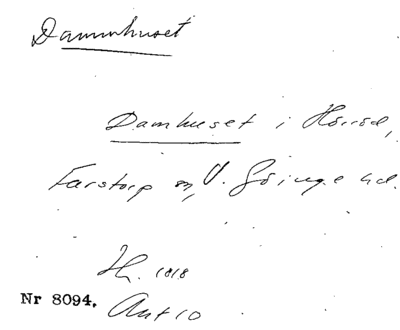 Dammhuset
Damhuset i Hörröd,
Farstorp sn, V. Göinge hd.
Hfl. 1818
Nr 8094. Ant 10